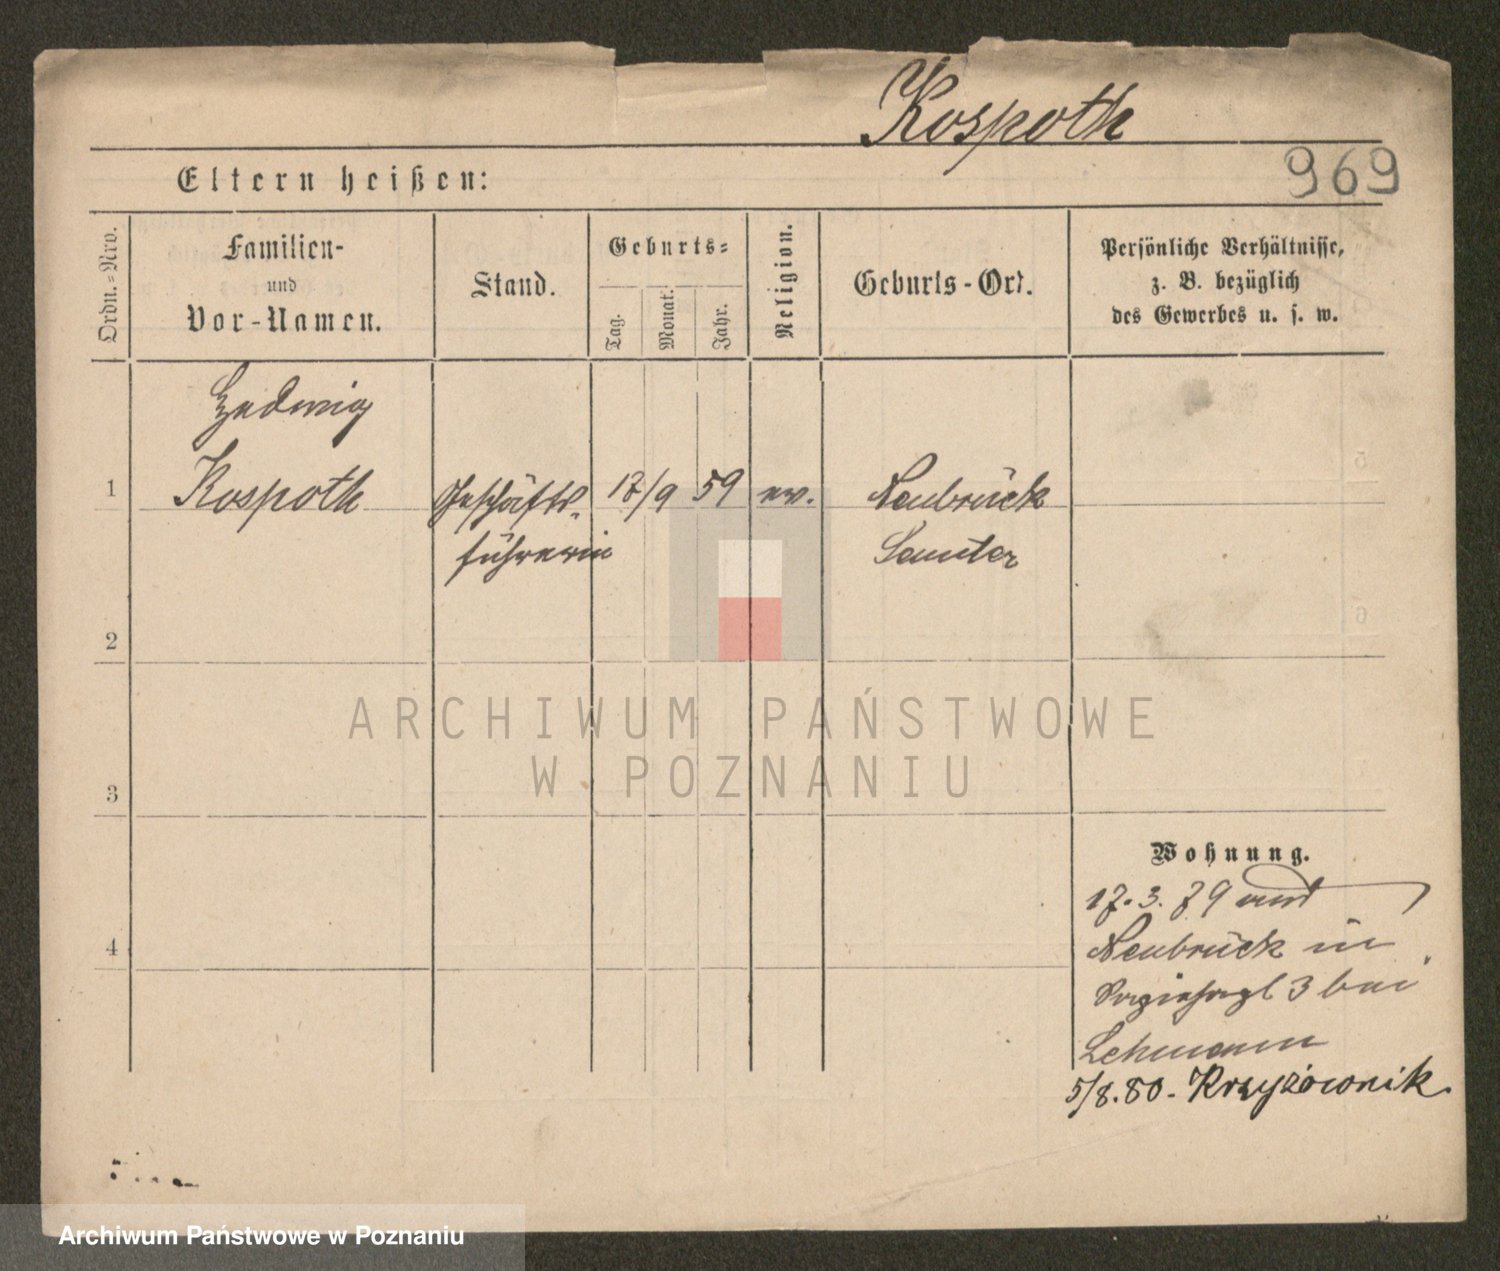 Kospoth
969
Eltern heißen:
Ordn.=Nro.
Familien-
und
Vor-Namen.
Stand.
Geburts=
Tag.
Monat.
Jahr.
Religion.
Geburts-Ort.
Persönliche Verhältnisse,
z. B. bezüglich
des Gewerbes u. s. w.
Hedwig
1 Kospoth Geschäfts- 17/9 59 ev. Neubrück
führerin Samter
2
3
4
ARCHIWUM PAŃSTWOWE
W POZNANIU
Wohnung.
17.3.79 aus
Neubrück in
3 bei
Lehmann
5/8.80. Krzyżownik.
Archiwum Państwowe w Poznaniu